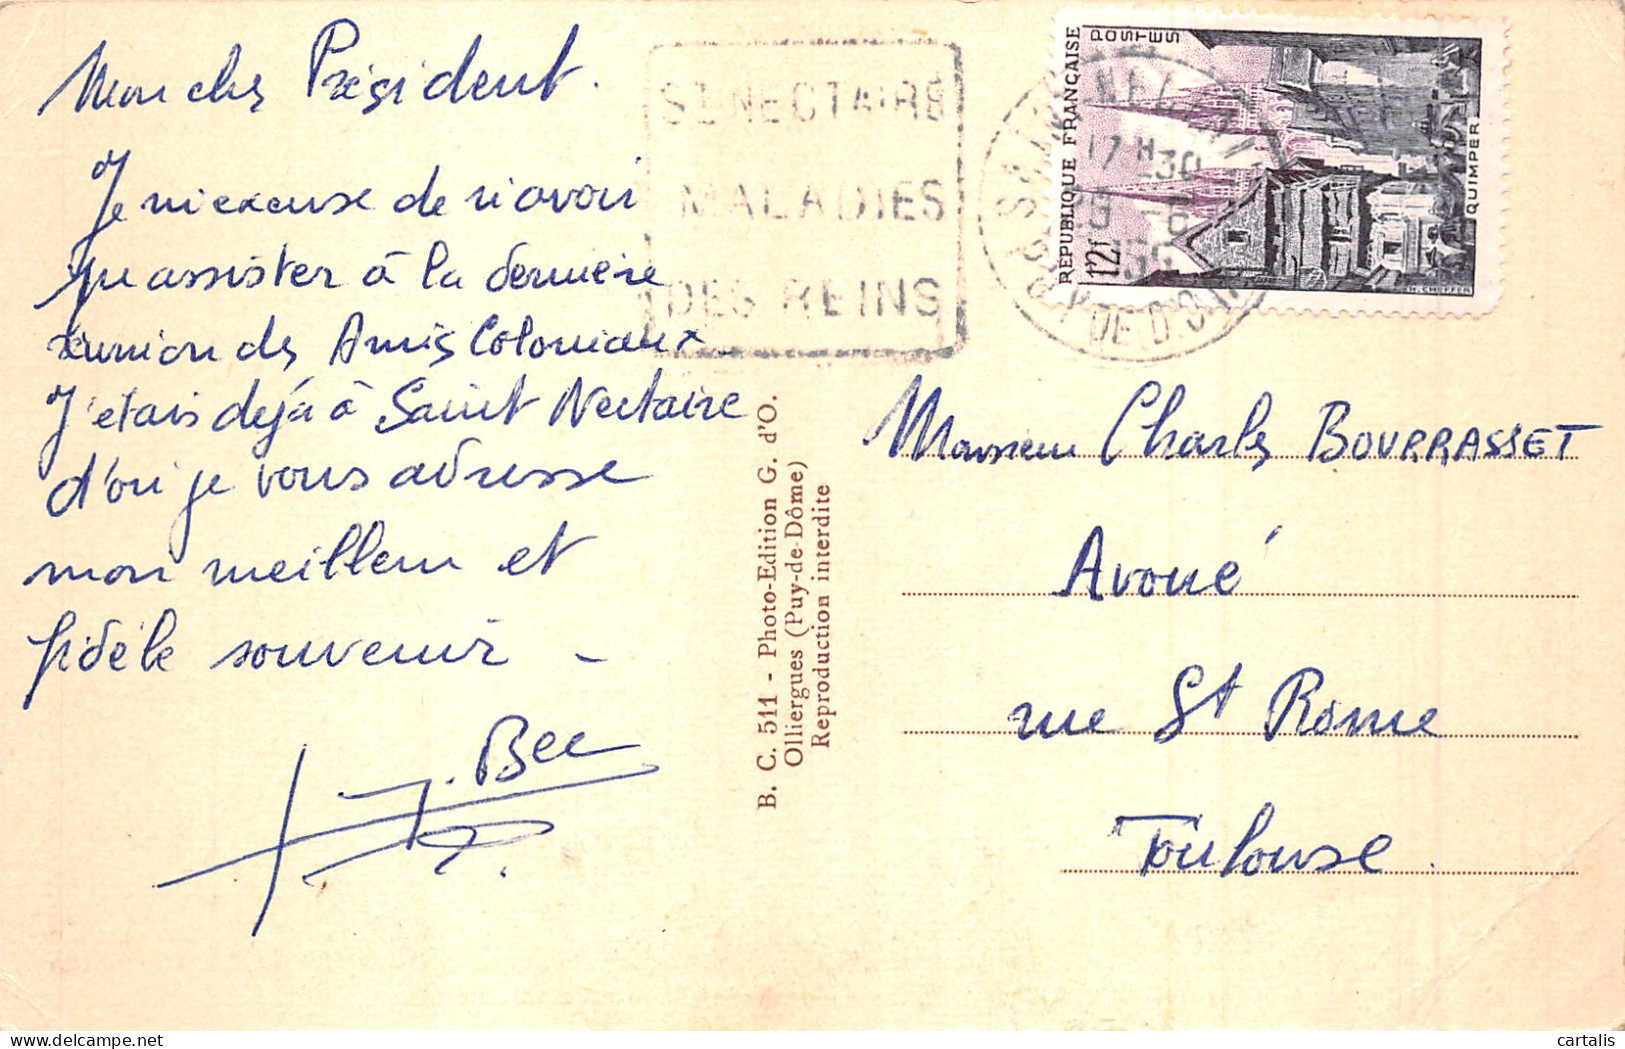 Mon cher Président.
Je m'excuse de n'avoir
pu assister à la dernière
réunion des Amis Coloniaux.
J'étais déjà à Saint Nectaire
d'où je vous adresse
mon meilleur et
fidèle souvenir -
J. Bec
ST NECTAIRE
MALADIES
DES REINS
17 H 30
PUY DE DOME
REPUBLIQUE FRANÇAISE
POSTES
12f
QUIMPER
H. CHEFFER
B. C. 511 - Photo-Edition G. d'O.
Olliergues (Puy-de-Dôme)
Reproduction interdite
Monsieur Charles BOURRASSET
Avoué
rue St Rome
Toulouse.
cartalis